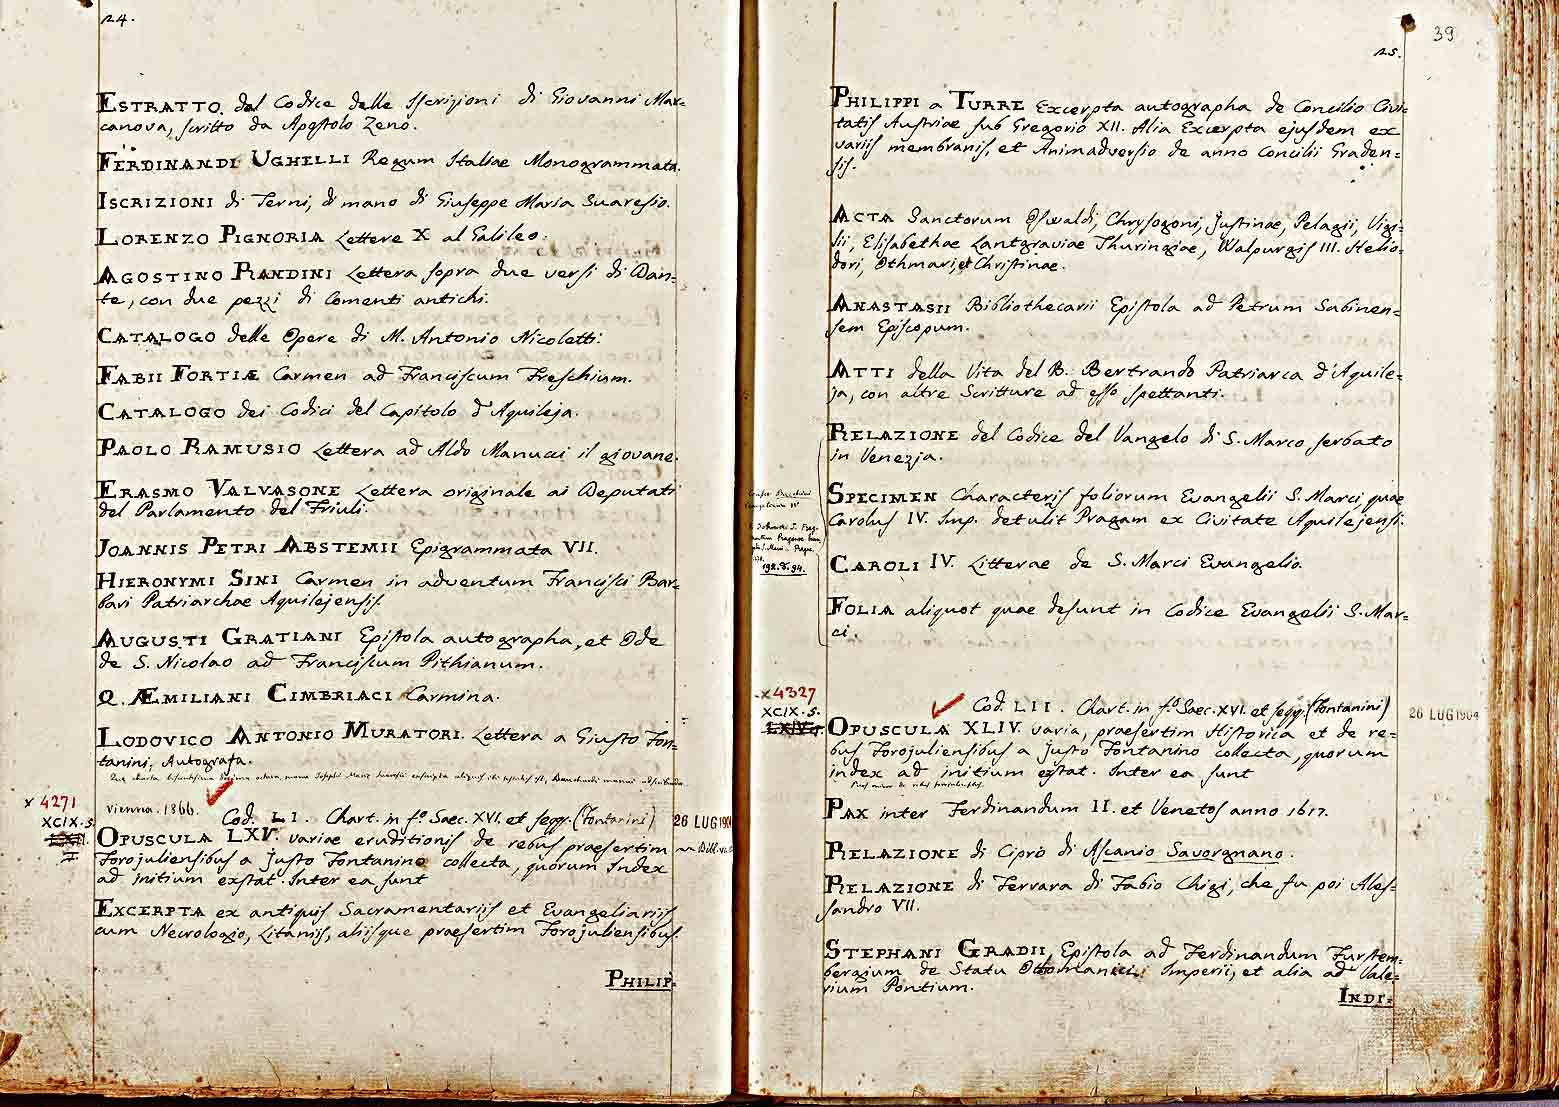 24.
ESTRATTO del Codice delle Iscrizioni di Giovanni Mar=
canova, scritto da Apostolo Zeno.
FERDINANDI UGHELLI Regum Italiae Monogrammata.
ISCRIZIONI di Terni, di mano di Giuseppe Maria Suaresio.
LORENZO PIGNORIA Lettere X al Galileo.
AGOSTINO RANDINI Lettera sopra due versi di Dan=
te, con due pezzi di Comenti antichi.
CATALOGO delle Opere di M. Antonio Nicoletti.
FABII FORTIÆ Carmen ad Franciscum Freschium.
CATALOGO dei Codici del Capitolo d'Aquileja.
PAOLO RAMUSIO Lettera ad Aldo Manucci il giovane.
ERASMO VALVASONE Lettera originale ai Deputati
del Parlamento del Friuli.
JOANNIS PETRI ABSTEMII Epigrammata VII.
HIERONYMI SINI Carmen in adventum Francisci Bar=
bari Patriarchae Aquilejensis.
AUGUSTI GRATIANI Epistola autographa, et Ode
de S. Nicolao ad Franciscum Pithianum.
Q. ÆMILIANI CIMBRIACI Carmina.
LODOVICO ANTONIO MURATORI. Lettera a Giusto Fon=
tanini, Autografa.
vienna. 1866.
x 4271
XCIX. 5.
Cod. LI. Chart. in f.º Saec. XVI. et seqq. (Fontanini)
26 LUG 190
OPUSCULA LXV. variae eruditionis de rebus praesertim
Forojuliensibus a Justo Fontanino collecta, quorum Index
ad initium exstat. Inter ea sunt
EXCERPTA ex antiquis Sacramentariis et Evangeliariis
cum Necrologio, Litaniis, aliisque praesertim Forojuliensibus.
PHILIP=
39
25.
PHILIPPI a TURRE Excerpta autographa de Concilio Civi=
tatis Austriae sub Gregorio XII. Alia Excerpta ejusdem ex
variis membranis, et Animadversio de anno Concilii Graden=
sis.
ACTA Sanctorum Oswaldi, Chrysogoni, Justinae, Pelagii, Vigi=
lii, Elisabethae Lantgraviae Thuringiae, Walpurgis III. Helio=
dori, Othmari, et Christinae.
ANASTASII Bibliothecarii Epistola ad Petrum Sabinen=
sem Episcopum.
ATTI della Vita del B. Bertrando Patriarca d'Aquile=
ja, con altre Scritture ad esso spettanti.
RELAZIONE del Codice del Vangelo di S. Marco, serbato
in Venezia.
SPECIMEN Characteris foliorum Evangelii S. Marci, quae
Carolus IV. Imp. detulit Pragam ex Civitate Aquilejensi.
192.D.94.
CAROLI IV. Litterae de S. Marci Evangelio.
FOLIA aliquot quae desunt in Codice Evangelii S. Mar=
ci.
x 4327
XCIX. 5.
Cod. LII. Chart. in f.º Saec. XVI. et seqq. (Fontanini)
26 LUG 1904
OPUSCULA XLIV. varia, praesertim Historica et de re=
bus Forojuliensibus a Justo Fontanino collecta, quorum
index ad initium exstat. Inter ea sunt
PAX inter Ferdinandum II. et Venetos anno 1617.
RELAZIONE di Cipro di Ascanio Savorgnano.
RELAZIONE di Ferrara di Fabio Chigi, che fu poi Ales=
sandro VII.
STEPHANI GRADII, Epistola ad Ferdinandum Fursten=
bergium de Statu Ottomanici Imperii, et alia ad Vale=
rium Pontium.
INDI=